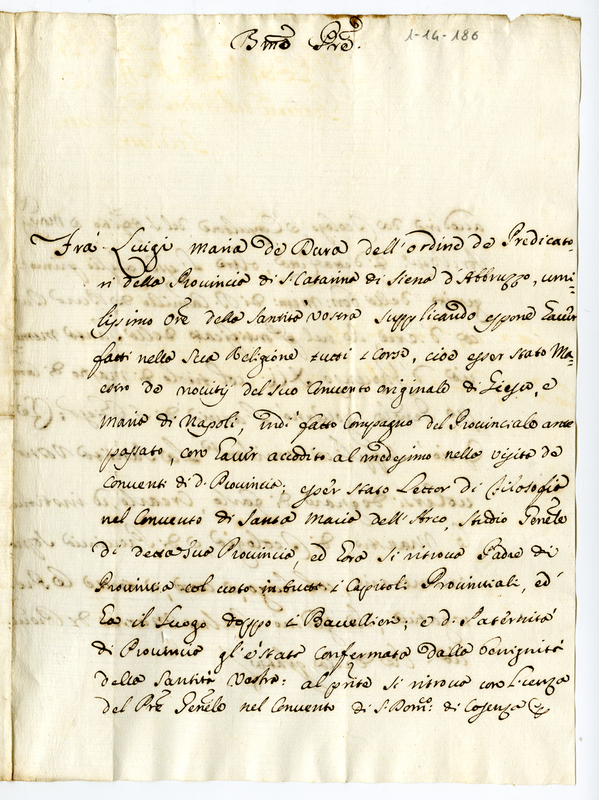 Bmo Pre.
1-14-186
Frà Luigi Maria de Dura dell'ordine de Predicato-
ri della Provincia di S. Catarina di Siena d'Abbruzzo, umi-
lissimo Ore della Santità Vostra supplicando espone Lavër
fatti nella sua Religione tutti i Corsi, cioè esser stato Ma-
estro de novitij del suo Convento originale di Giesù, e
Maria di Napoli, indi fatto Compagno del Provinciale ante
passato, con accodito al medesimo nella visita de
Conventi di d. Provincia: esser stato Lettor di Filosofia
nel Convento di Santa Maria dell'Arco, Studio Genële
di detta sua Provincia, ed Ora si ritrova Padre di
Provincia col voto in tutti i Capitoli Provinciali, ed
La il Luogo doppo i Baccellieri; e d. Paternità
di Provincia gl'è stata confermata dalla benignità
della Santità Vostra: al pñte si ritrova con Licenza
del Pre Genële nel Convento di S. Domco: di Cosenza